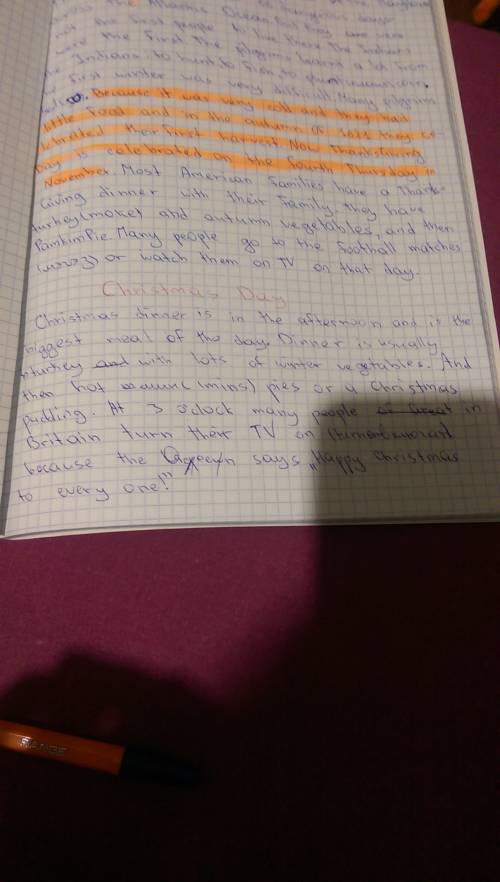 the Atlantic Ocean. But they were
not the first people to live there. The Indians
were the first. The pilgrims learnt a lot from
Indians to hunt to fish to
first winter was very difficult. Many pilgrims
Because it was very cold and they had
little food and in the autumn of 1621 they ce
lebrated their first harvest. Now Thanksgiving
Day is celebrated on the fourth Thursday in
November. Most American families have a Thank-
Giving dinner with their family. They have
turkey and autumn vegetables, and then
PamkimPie. Many people go to the football matches
or watch them on TV on that day.
Christmas Day
Christmas dinner is in the afternoon and is the
biggest meal of the day. Dinner is usually
turkey and with lots of winter vegetables. And
then hot (mins) pies or a Christmas
pudding. At 3 o'clock many people in
Britain turn their TV on
because the says „Happy Christmas
to every one!"
RANGE